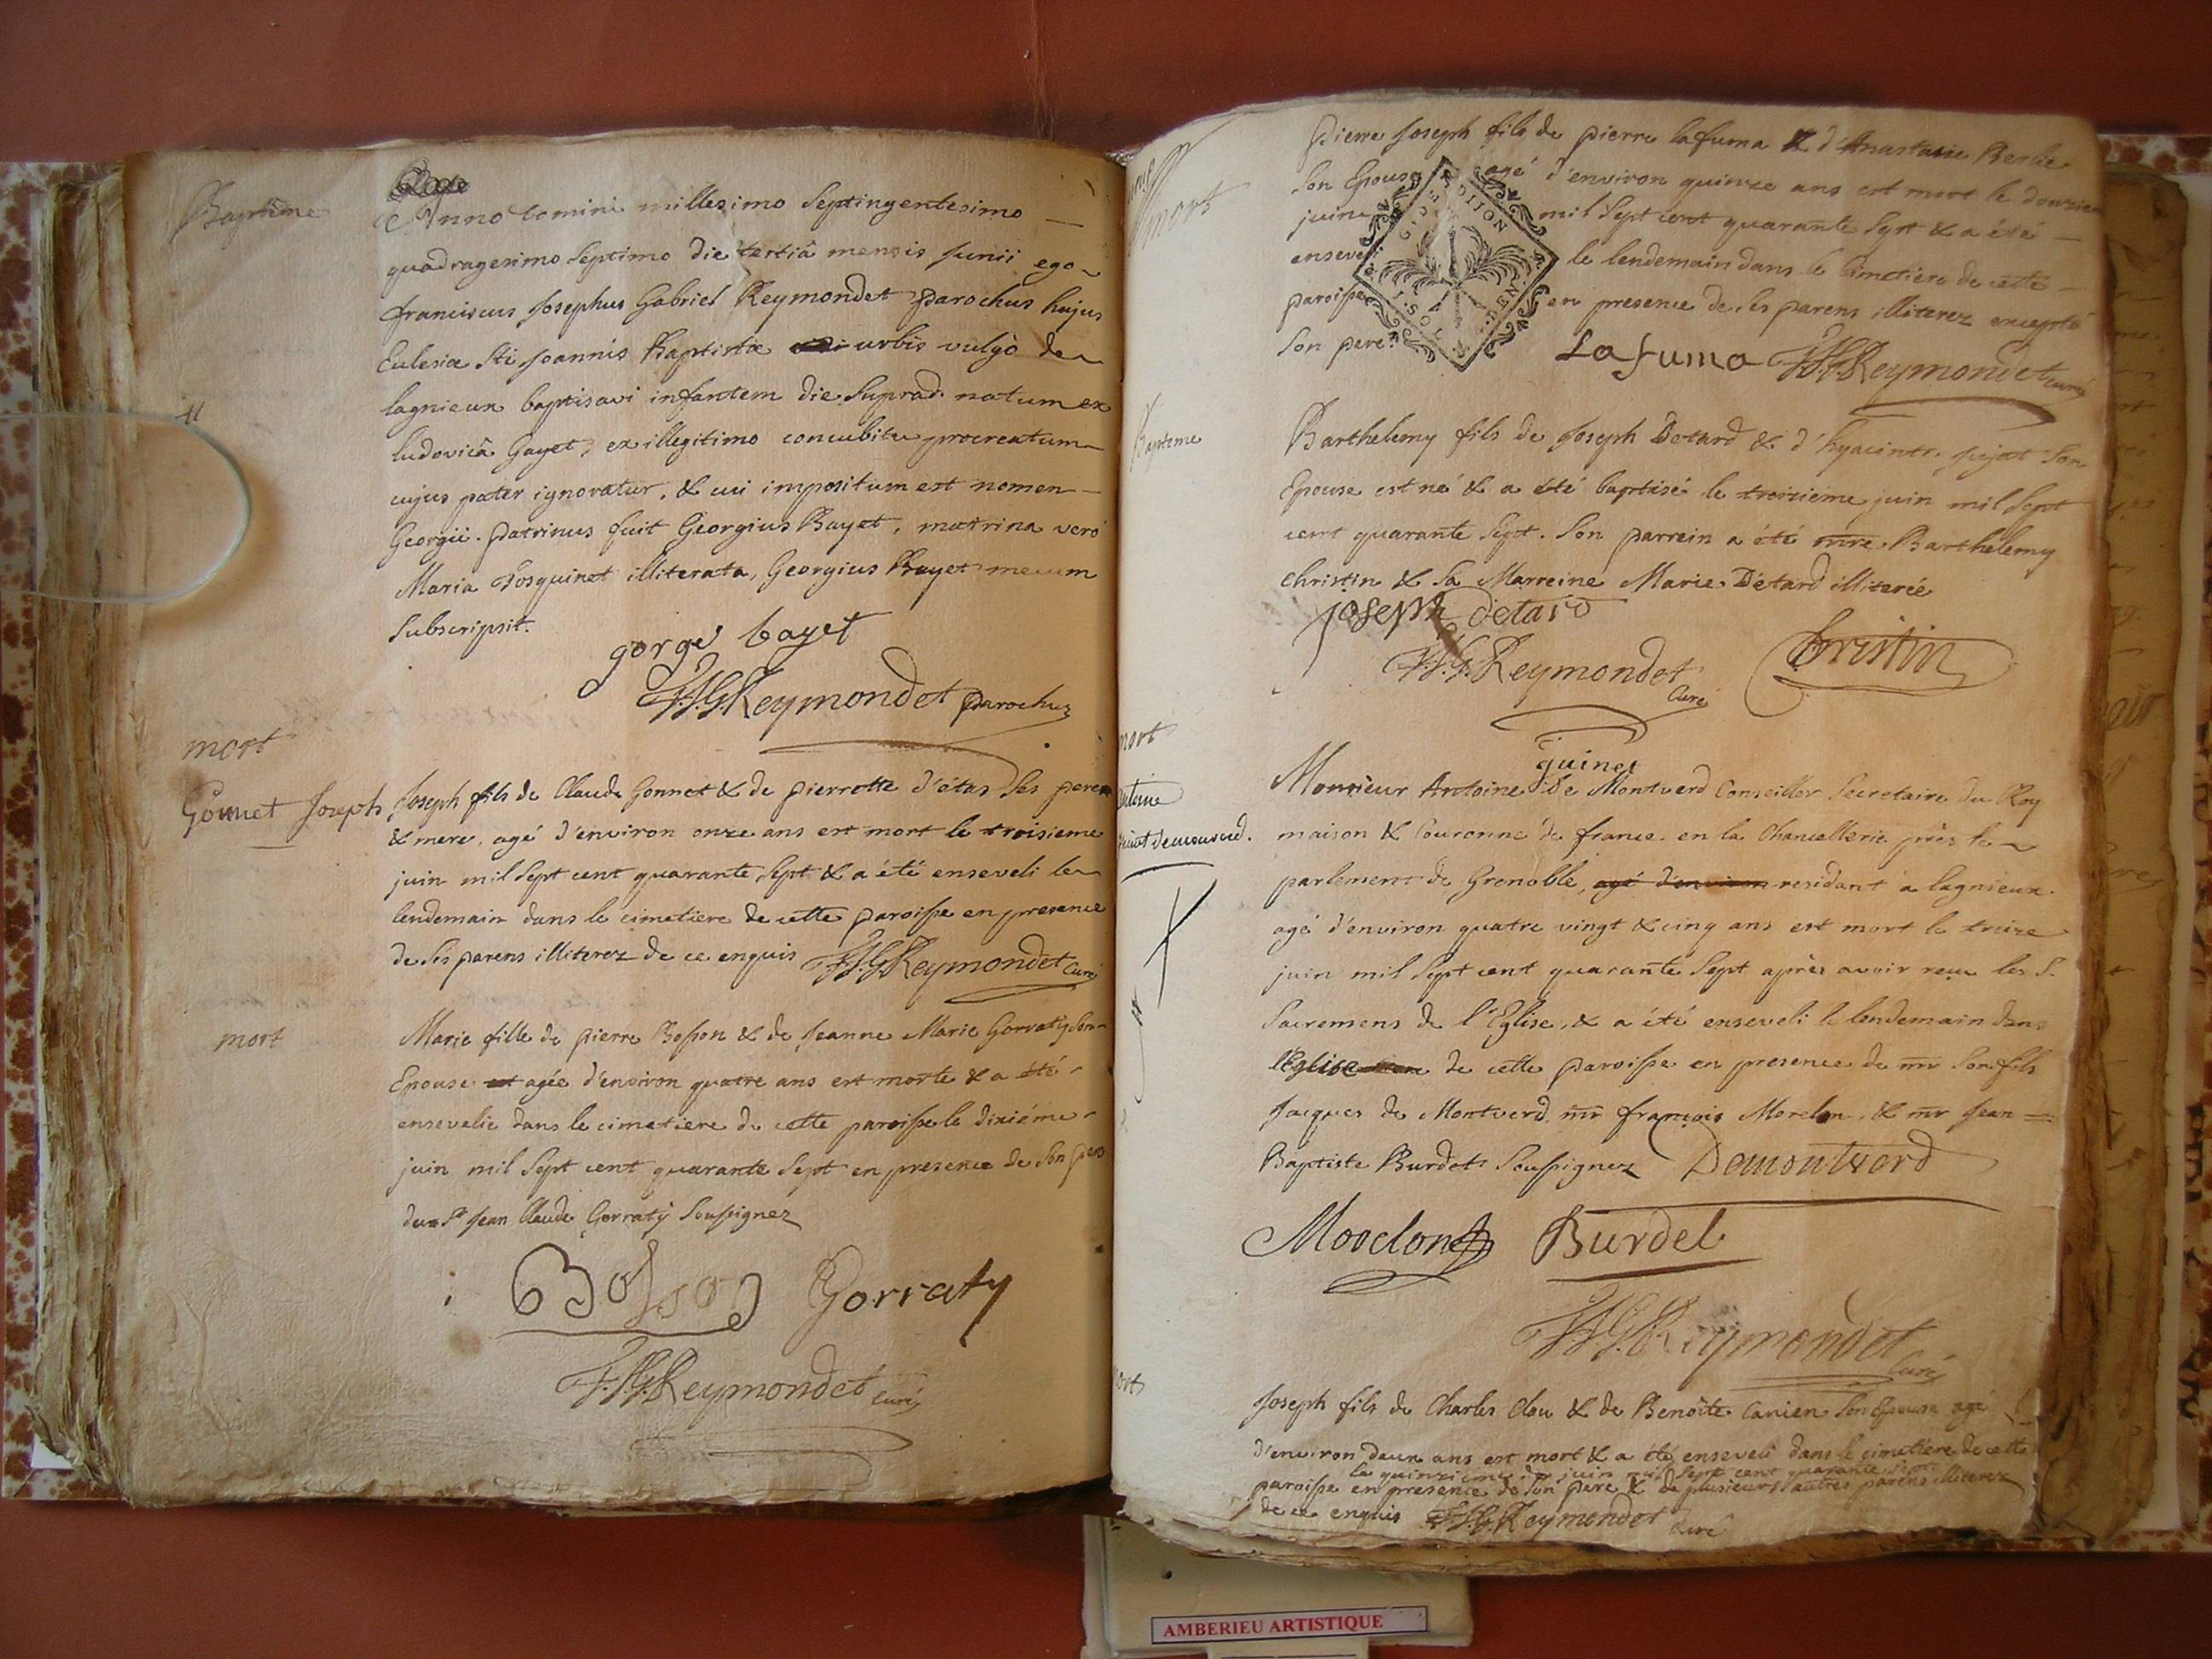 Baptême
Anno Domini millesimo Septingentesimo
quadragesimo Septimo die tertiâ mensis Junii ego
franciscus Josephus Gabriel Reymondet parochus hujus
Eclesiæ Sti Joannis Baptistæ urbis vulgò de
lagnieux baptisavi infantem die Suprad. natum ex
ludovicâ Gayet, ex illegitimo concubitu procreatum
cujus pater ignoratur, & cui impositum est nomen
Georgii. patrinus fuit Georgius Bayet, matrina verò
Maria illiterata, Georgius Bayet mecum
Subscripsit.
gorge bayet
F.J.G. Reymondet parochus
mort
Gonnet Joseph
Joseph fils de Claude Gonnet & de pierrette d'étas Ses pere
& mere, agé d'environ onze ans est mort le troisieme
juin mil Sept cent quarante Sept & a été enseveli le
lendemain dans le cimetiere de cette paroisse en presence
de Ses parens illiterez de ce enquis F.J.G. Reymondet Curé
mort
Marie fille de pierre Bosson & de Jeanne Marie Gorraty Son
Epouse agée d'environ quatre ans est morte & a été
ensevelie dans le cimetiere de cette paroisse le dixiéme
juin mil Sept cent quarante Sept en presence de Son pere
du Sr Jean Claude Gorraty Soussignez
Bosson Gorraty
F.J.G. Reymondet curé
mort
Pierre Joseph fils de pierre lafuma & d'Anastasie Berlie
Son Epouse agé d'environ quinze ans est mort le douzieme
juin mil Sept cent quarante Sept & a été
enseveli le lendemain dans le Cimetiere de cette
paroisse en presence de Ses parens illiterez excepté
Son pere.
G. DE DIJON
Lafuma F.J.G. Reymondet curé
Bapteme
Barthelemy fils de Joseph Detard & d'hyacinte pujat Son
Epouse est né & a été baptisé le treizieme juin mil Sept
cent quarante Sept. Son parrein a été mre Barthelemy
christin & Sa Marreine Marie Détard illiterée
joseph detard
F.J.G. Reymondet Curé
Christin
mort
Antoine
guinet demontverd.
guinet
Monsieur Antoine De Montverd Conseiller Secretaire du Roy
maison & Couronne de france en la Chancellerie près le
parlement de Grenoble, agé d'environ residant à lagnieux
agé d'environ quatre vingt & cinq ans est mort le treize
juin mil Sept cent quarante Sept après avoir reçu les S.
Sacremens de l'Eglise, & a été enseveli le lendemain dans
l'Eglise de cette paroisse en presence de mr Son fils
Jacques de Montverd, mr françois Morelon, & mr Jean =
Baptiste Burdet Soussignez Demontverd
Morelon Burdel
F.J.G. Reymondet Curé
mort
Joseph fils de Charles clou & de Benoîte Canien Son Epouse agé
d'environ deux ans est mort & a été enseveli dans le cimetiere de cette
le quinzieme de juin mil Sept cent quarante Sept
paroisse en presence de Son pere & de plusieurs autres parens illiterez
de ce enquis F.J.G. Reymondet curé
AMBERIEU ARTISTIQUE